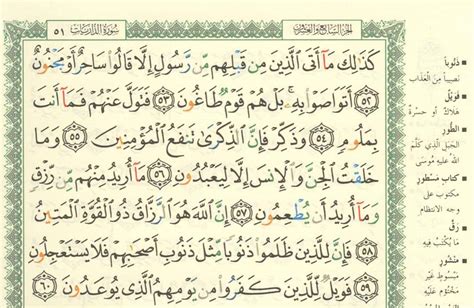 الجزء السابع والعشرون
سورة الذاريات ٥١
كَذَٰلِكَ مَآ أَتَى ٱلَّذِينَ مِن قَبْلِهِم مِّن رَّسُولٍ إِلَّا قَالُوا۟ سَاحِرٌ أَوْ مَجْنُونٌ
٥٢ أَتَوَاصَوْا۟ بِهِۦ ۚ بَلْ هُمْ قَوْمٌ طَاغُونَ ٥٣ فَتَوَلَّ عَنْهُمْ فَمَآ أَنتَ
بِمَلُومٍ ٥٤ وَذَكِّرْ فَإِنَّ ٱلذِّكْرَىٰ تَنفَعُ ٱلْمُؤْمِنِينَ ٥٥ وَمَا
خَلَقْتُ ٱلْجِنَّ وَٱلْإِنسَ إِلَّا لِيَعْبُدُونِ ٥٦ مَآ أُرِيدُ مِنْهُم مِّن رِّزْقٍ
وَمَآ أُرِيدُ أَن يُطْعِمُونِ ٥٧ إِنَّ ٱللَّهَ هُوَ ٱلرَّزَّاقُ ذُو ٱلْقُوَّةِ ٱلْمَتِينُ
٥٨ فَإِنَّ لِلَّذِينَ ظَلَمُوا۟ ذَنُوبًا مِّثْلَ ذَنُوبِ أَصْحَٰبِهِمْ فَلَا يَسْتَعْجِلُونِ
٥٩ فَوَيْلٌ لِّلَّذِينَ كَفَرُوا۟ مِن يَوْمِهِمُ ٱلَّذِى يُوعَدُونَ ٦٠
ذَنُوباً
نصيباً من العذاب
فَوَيْلٌ
هلاكٌ أو حسرةٌ
الطُّورِ
الجبل الذي كلّم
اللهُ عليه موسى
كتابٍ مسطورٍ
مكتوب على
وجه الانتظام
رَقٍّ
ما يُكتب فيه
منشورٍ
مبسوط غير
مختوم عليه